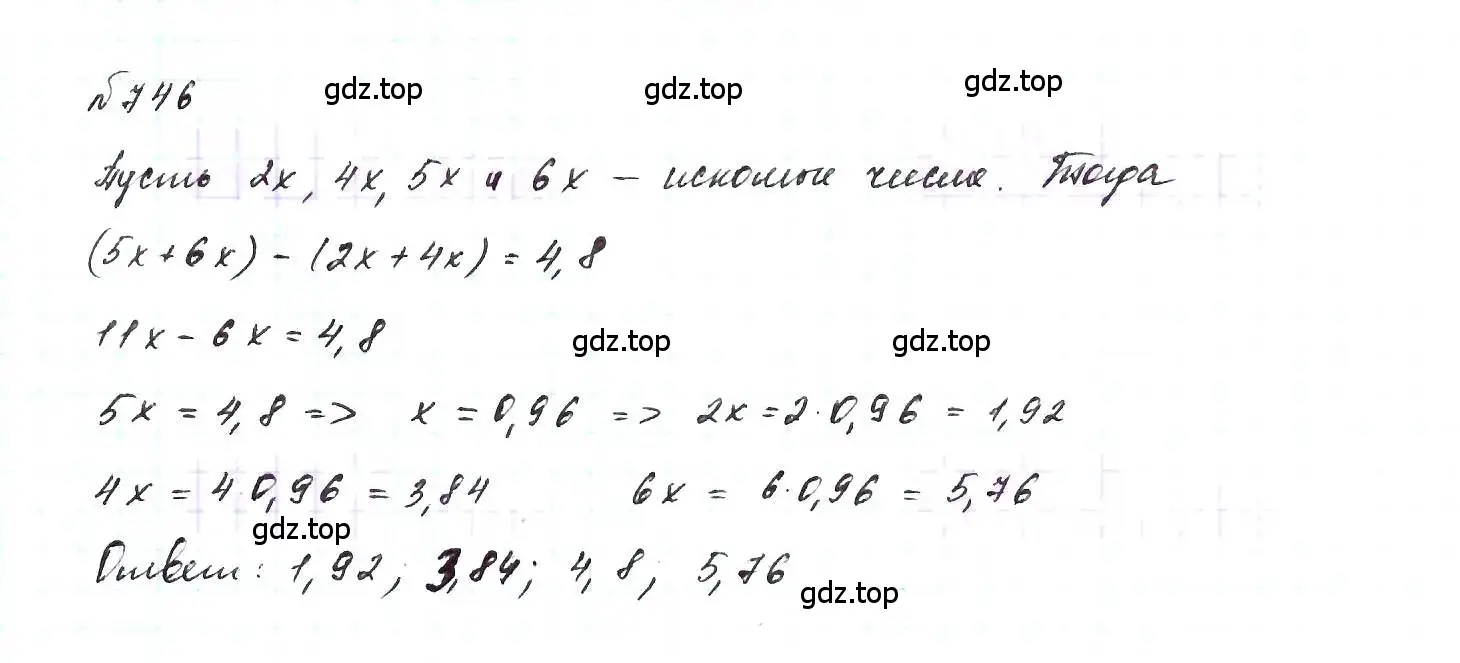 №746
gdz.top gdz.top gdz.top
Пусть 2x, 4x, 5x и 6x – искомые числа. Тогда
(5x+6x) - (2x+4x) = 4,8
11x - 6x = 4,8
gdz.top gdz.top
5x = 4,8 => x = 0,96 => 2x = 2·0,96 = 1,92
4x = 4·0,96 = 3,84 6x = 6·0,96 = 5,76
gdz.top
Ответ: 1,92; 3,84; 4,8; 5,76
gdz.top